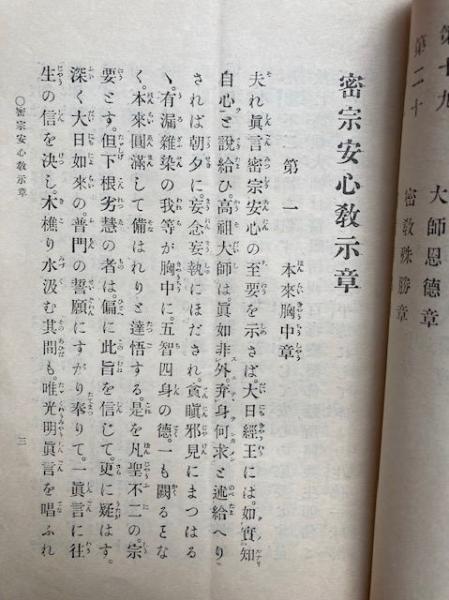 第十九
大師恩德章
第二十
密敎殊勝章
密宗安心敎示章
第一
本來胸中章
夫れ眞言密宗安心の至要を示さば。大日經王には。如實知
自心と說給ひ高祖大師は。眞如非外。弃身何求と述給へり
されば朝夕に。妄念妄執にほだされ。貪瞋邪見にまつはる
ゝ。有漏雜染の我等が胸中に。五智四身の德。一も闕るとな
く。本來圓滿して備はれりと達悟する。是を凡聖不二の。宗
要とす。但下根劣慧の者は。偏に此旨を信じて。更に疑はす。
深く大日如來の。普門の誓願にすがり奉りて。一眞言に往
生の信を決し。木樵り水汲む其間も。唯光明眞言を唱ふれ
○密宗安心敎示章
三